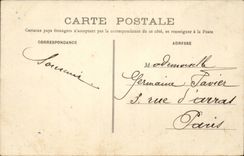 CARTE POSTALE
Certains pays étrangers n'acceptent pas la correspondance de ce côté, se renseigner à la Poste
CORRESPONDANCE
ADRESSE
Souvenir
Mademoiselle
Germaine Favier
3. rue d'arras
Paris